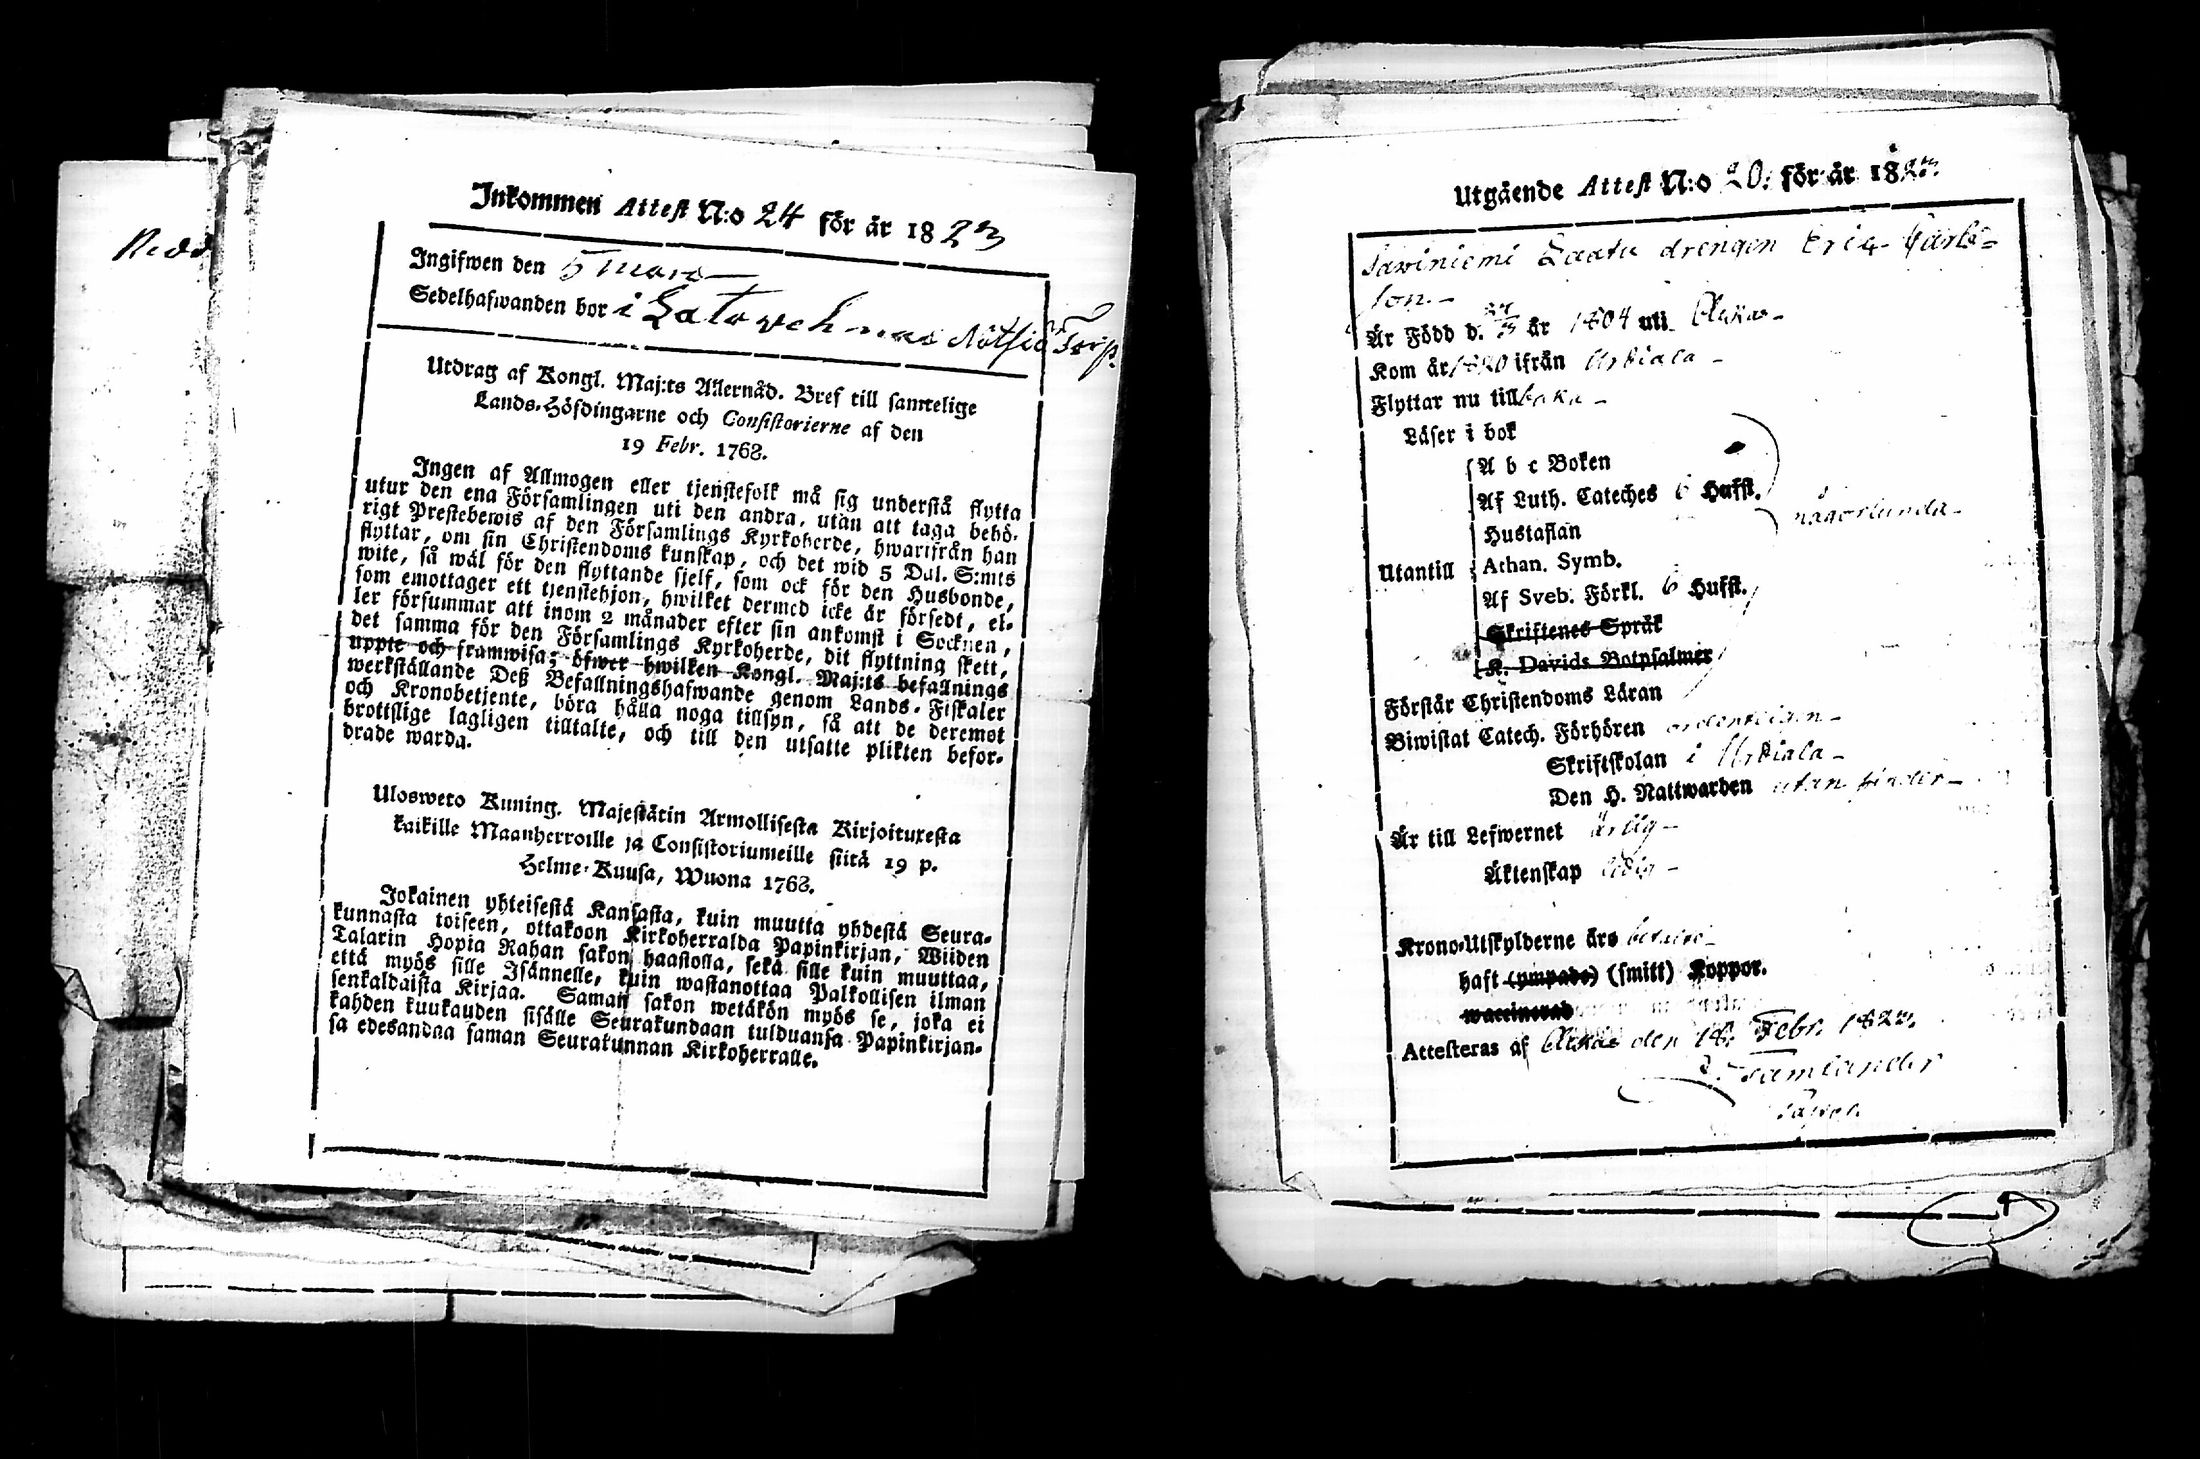 Inkommen Attest N:o 24 för år 1823
Ingifwen den 5 mars
Sedelhafwanden bor i Torp.
Utdrag af Kongl. Maj:ts Allernåd. Bref till samtelige
Lands-Höfdingarne och Consistorierne af den
19 Febr. 1768.
Ingen af Allmogen eller tjenstefolk må sig understå flytta
utur den ena Församlingen uti den andra, utan att taga behö-
rigt Prestebewis af den Församlings Kyrkoherde, hwarifrån han
flyttar, om sin Christendoms kunskap, och det wid 5 Dal. S:mts
wite, så wäl för den flyttande sjelf, som ock för den Husbonde,
som emottager ett tjenstehjon, hwilket dermed icke är försedt, el-
ler försummar att inom 2 månader efter sin ankomst i Socknen,
det samma för den Församlings Kyrkoherde, dit flyttning skett,
uppte och framwisa; öfwer hwilken Kongl. Maj:ts befallnings
werkställande Deß Befallningshafwande genom Lands-Fiskaler
och Kronobetjente, böra hålla noga tillsyn, så att de deremot
brottslige lagligen tilltalte, och till den utsatte plikten befor-
drade warda.
Uloswetо Kuning. Majestätin Armollisesta Kirjoituxesta
kaikille Maanherroille ja Consistoriumeille siitä 19 p.
Helme-Kuusa, Wuona 1768.
Jokainen yhteisestä Kansasta, kuin muutta yhdestä Seura-
kunnasta toiseen, ottakoon Kirkoherralda Papinkirjan, Wiiden
Talarin Hopia Rahan sakon haastolla, sekä sille kuin muuttaa,
että myös sille Isännelle, kuin wastanottaa Palkollisen ilman
senkaldaista Kirjaa. Saman sakon wetäkön myös se, joka ei
kahden kuukauden sisälle Seurakundaan tulduansa Papinkirjan-
sa edesandaa saman Seurakunnan Kirkoherralle.
Utgående Attest N:o 20. för år 1823
Sawiniemi Laatu drengen Eric Carls-
son.
Är Född d. år 1804 uti Akkas
Kom år 1820 ifrån Urdiala
Flyttar nu tillbaka
Läser i bok
A b c Boken
Af Luth. Cateches 6 Hufst.
Hustaflan
någorlunda
Utantill
Athan. Symb.
Af Sveb. Förkl. 6 Hufst.
Skriftenes Språk
K. Davids Botpsalmer
Förstår Christendoms Läran
Biwistat Catech. Förhören ordenteligen
Skriftskolan i Urdiala
Den H. Nattwarden utan hinder
Är till Lefwernet ärlig
Äktenskap ledig
Krono-Utskylderne äro betalte
haft (ympade) (smitt) Koppor.
waccinerad
Attesteras af Akkas den 18 Febr. 1823.
Tamlander